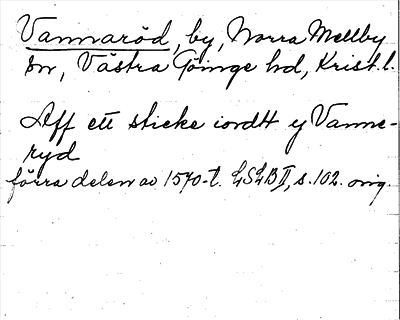 Vannaröd, by, Norra Mellby
sn, Västra Göinge hd, Krist.l.
Aff ett sticke iordtt y Vanne-
ryd
förra delen av 1570-t. LSLB II, s. 102. orig.